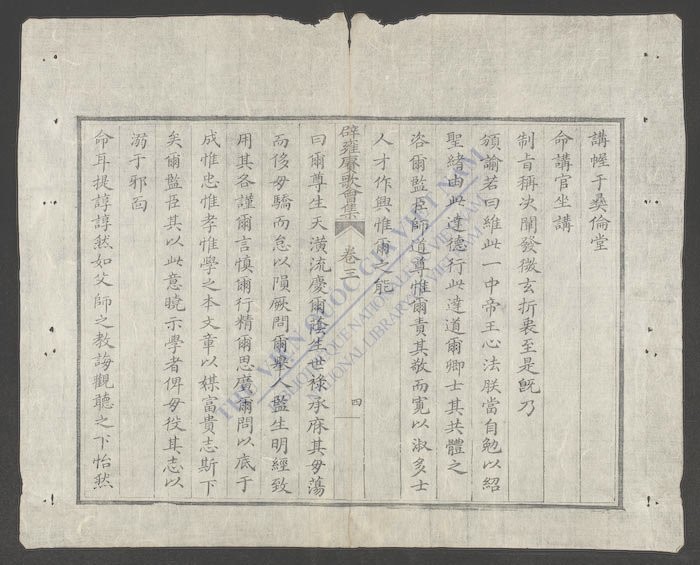 講幄于彝倫堂
命講官坐講
制旨稱決闡發微玄折衷至是旣乃
頒諭若曰維此一中帝王心法朕當自勉以紹
聖緒由此達德行此達道爾卿士其共體之
咨爾監臣師道尊惟爾責其敬而寬以淑多士
人才作興惟爾之能
辟雍賡歌會集 卷三 四
曰爾尊生天潢流慶爾蔭生世祿承庥其毋蕩
而侈毋驕而怠以隕厥問爾舉人監生明經致
用其各謹爾言慎爾行精爾思廣爾問以底于
成惟忠惟孝惟學之本文章以媒富貴志斯下
矣爾監臣其以此意曉示學者俾毋役其志以
溺于邪面
命耳提諄諄然如父師之教誨觀聽之下怡然
THƯ VIỆN QUỐC GIA VIỆT NAM
BIBLIOTHEQUE NATIONALE DU VIETNAM
NATIONAL LIBRARY OF VIETNAM